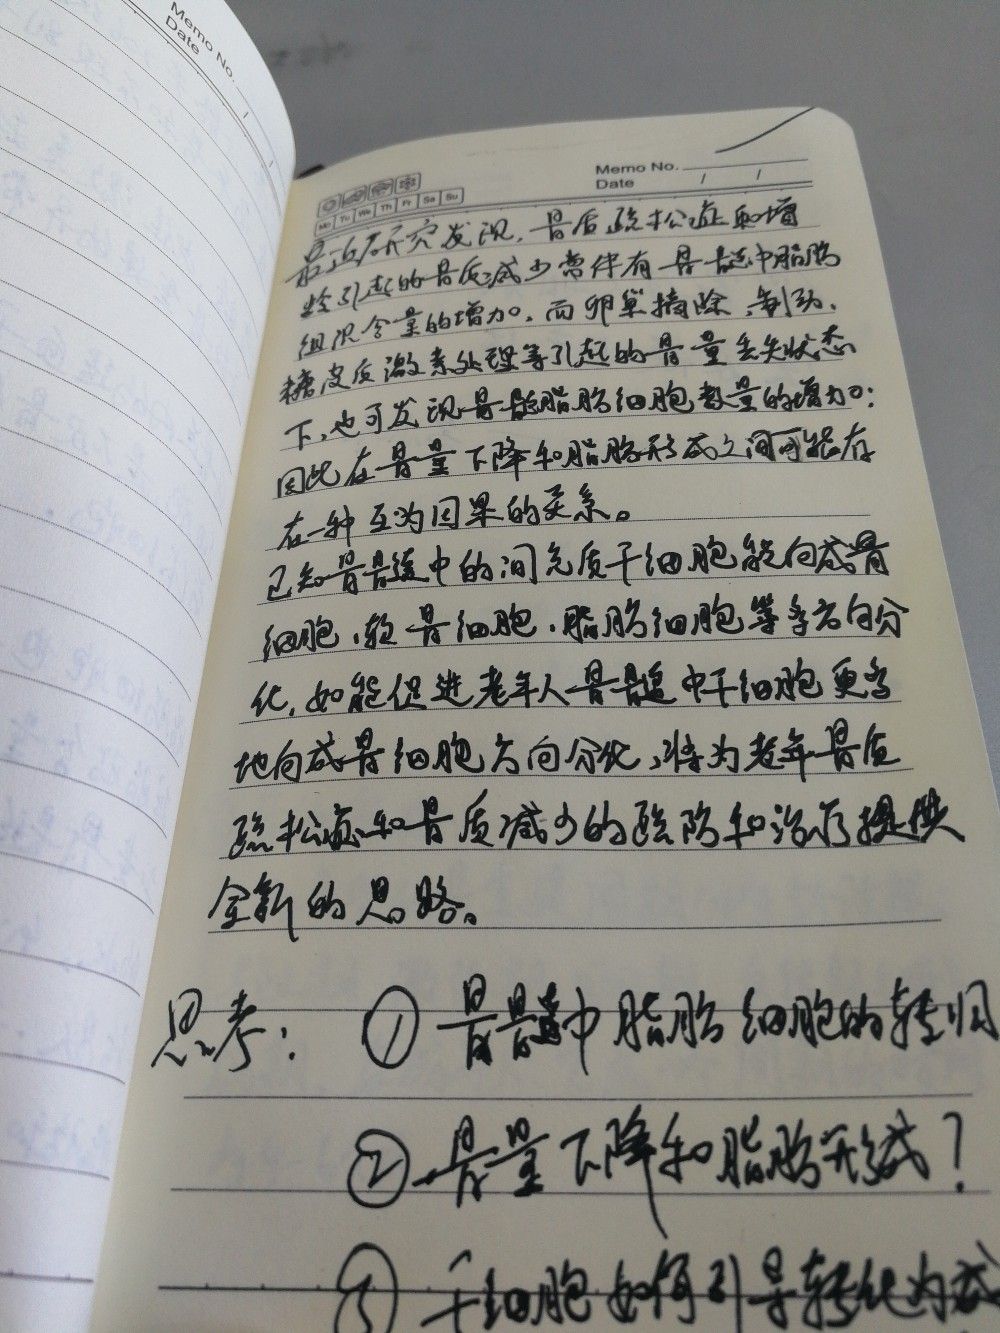 Memo No.
Date
Memo No.
Date / /
Mo Tu We Th Fr Sa Su
最近研究发现,骨质疏松症和增
龄引起的骨质减少常伴有骨髓中脂肪
组织含量的增加。而卵巢摘除、制动、
糖皮质激素处理等引起的骨量丢失状态
下,也可发现骨髓脂肪细胞数量的增加。;
因此在骨量下降和脂肪形成之间可能存
在一种互为因果的关系。
已知骨髓中的间充质干细胞能向成骨
细胞、软骨细胞、脂肪细胞等多方向分
化,如能促进老年人骨髓中干细胞更多
地向成骨细胞方向分化,将为老年骨质
疏松症和骨质减少的预防和治疗提供
全新的思路。
思考:①骨髓中脂肪细胞的转归
②骨量下降和脂肪形成?
③干细胞如何引导转化为成